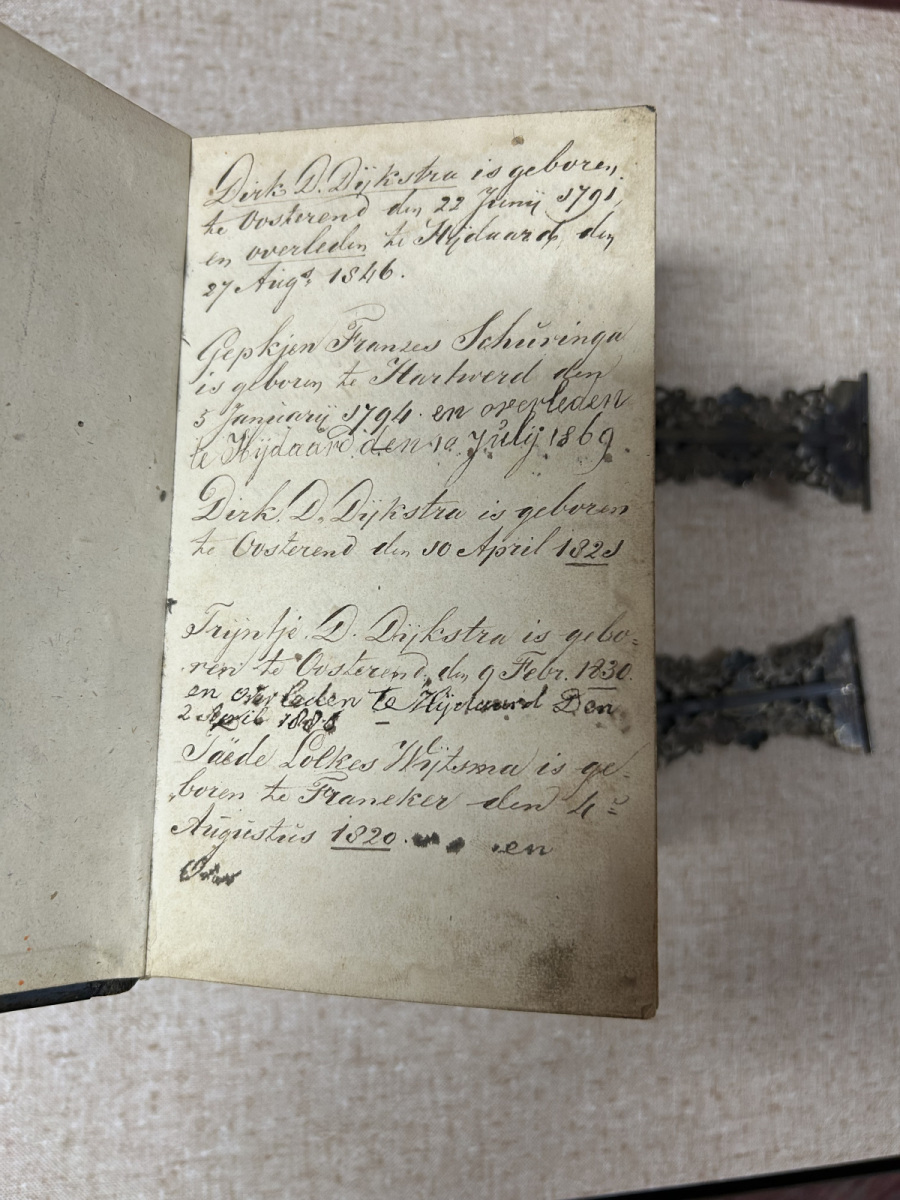 Dirk D. Dijkstra is geboren
te Oosterend den 22 Junij 1791,
en overleden te Hijdaard, den
27 Augs. 1846.
Gepkjen Franzes Schúringa
is geboren te Hartwerd den
5 Januarij 1794. en overleden
te Hijdaard den 10 Julij 1869
Dirk. D. Dijkstra is geboren
te Oosterend den 10 April 1821
Trijntje D. Dijkstra is gebo=
ren te Oosterend, den 9 Febr. 1830.
en overleden te Hijdaard Den
2 April
Taëde Lolkes Wijtsma is ge=
boren te Franeker den 4e
Augústús 1820. en